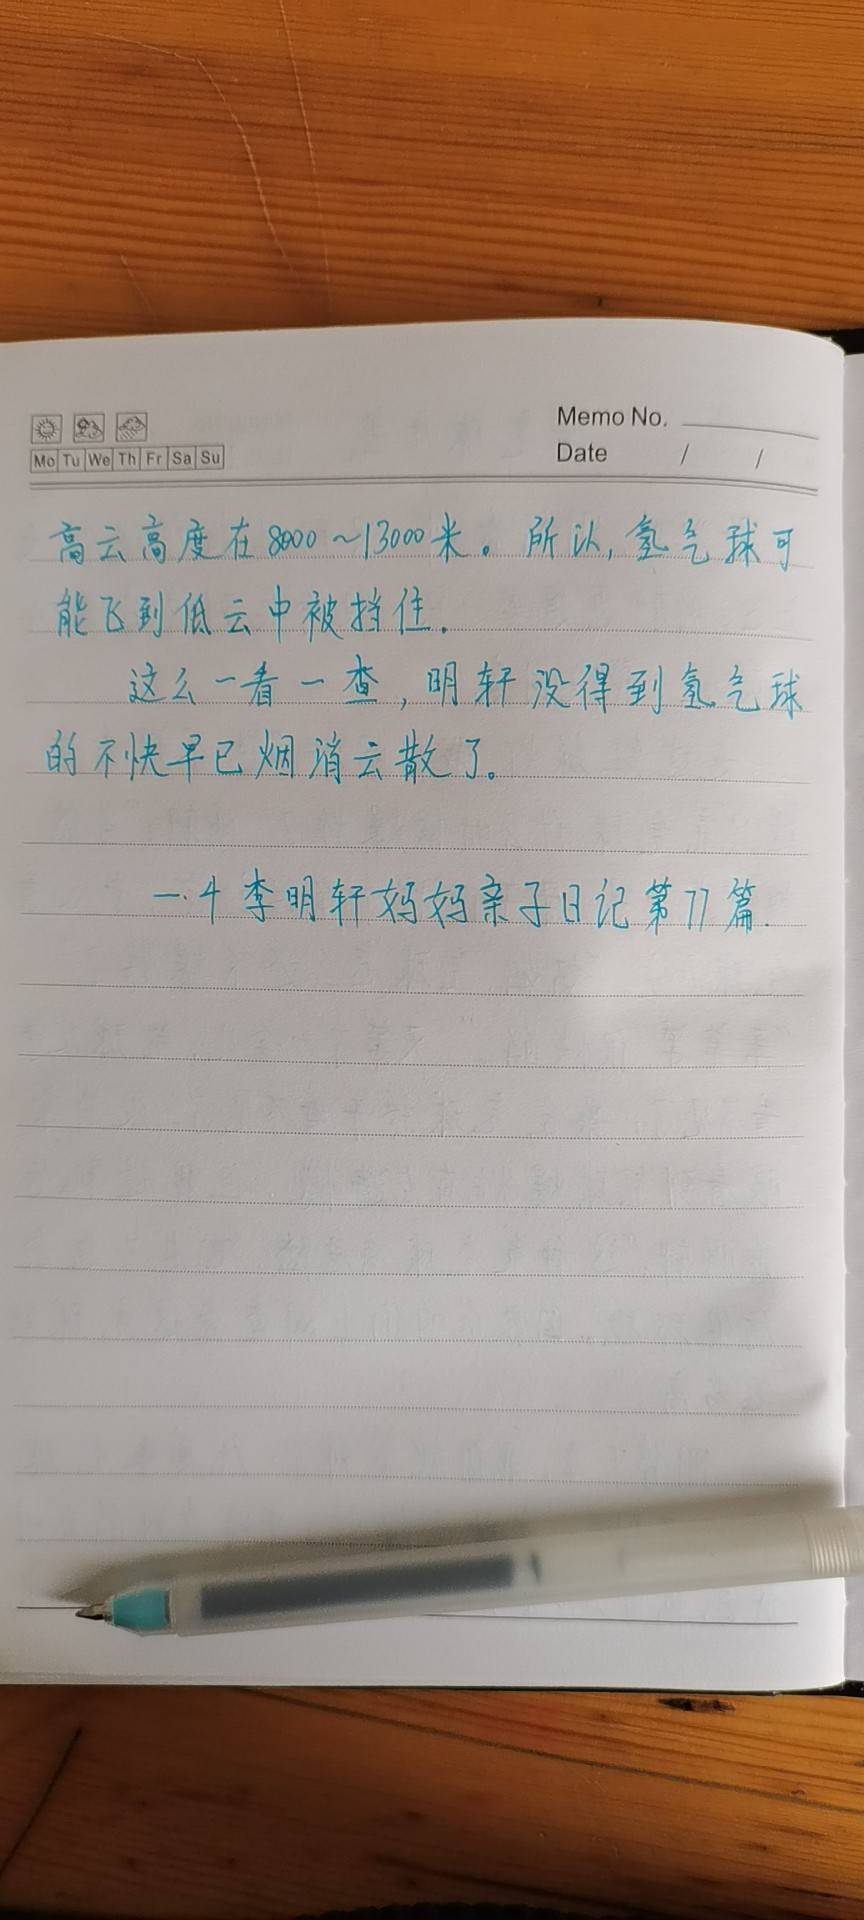 Memo No.
Mo Tu We Th Fr Sa Su
Date / /
高云高度在8000~13000米。所以,氢气球可
能飞到低云中被挡住.
这么一看一查,明轩没得到氢气球
的不快早已烟消云散了。
一.4李明轩妈妈亲子日记第77篇.